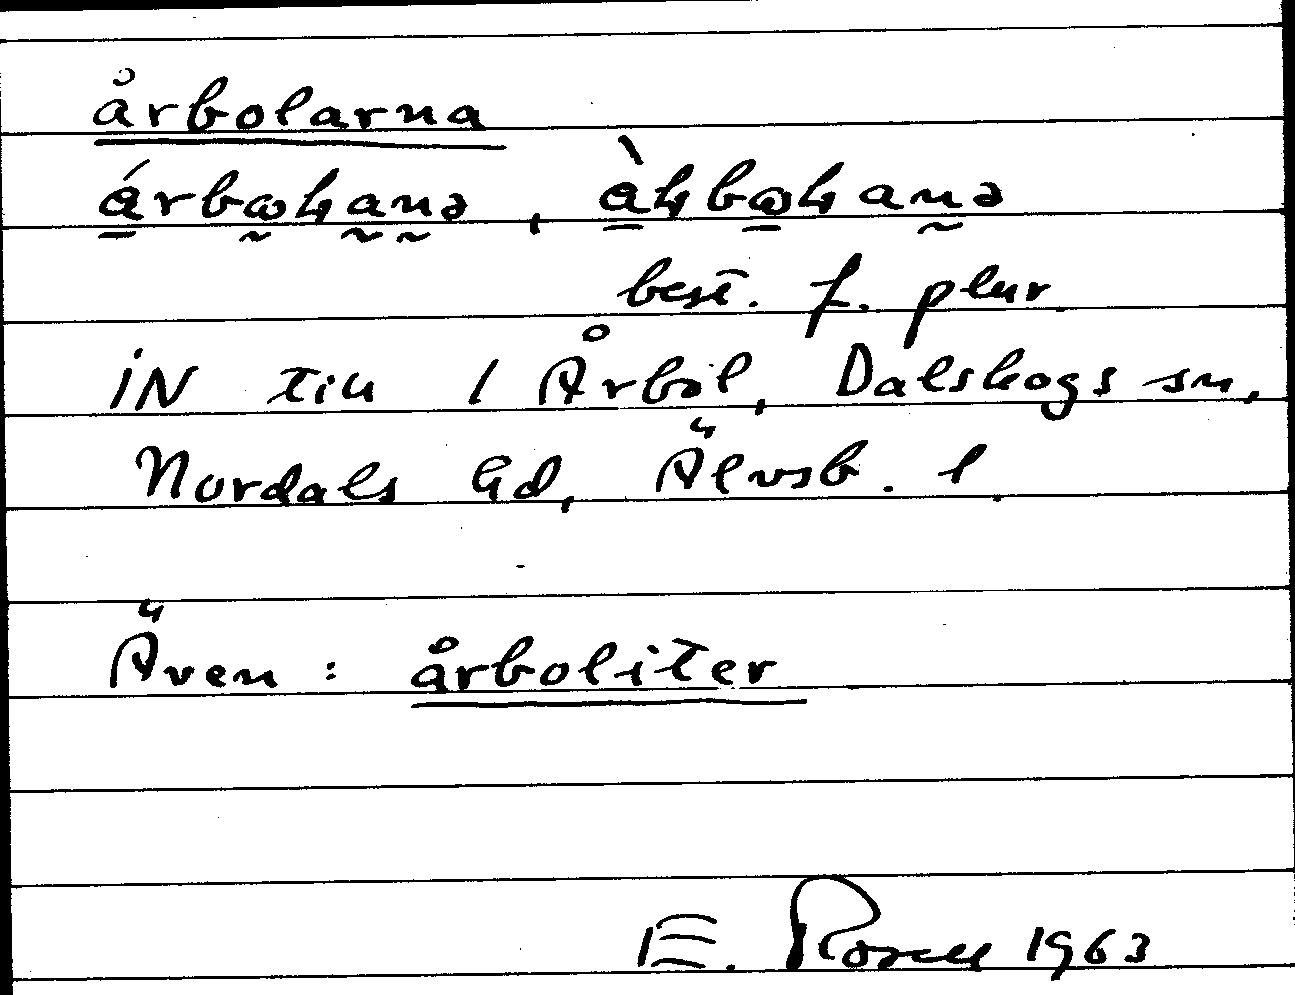 årbolarna
best. f. plur
iN till 1 Årbol, Dalskogs sn,
Nordals hd, Älvsb. l.
Även : årboliter
E. Rosell 1963